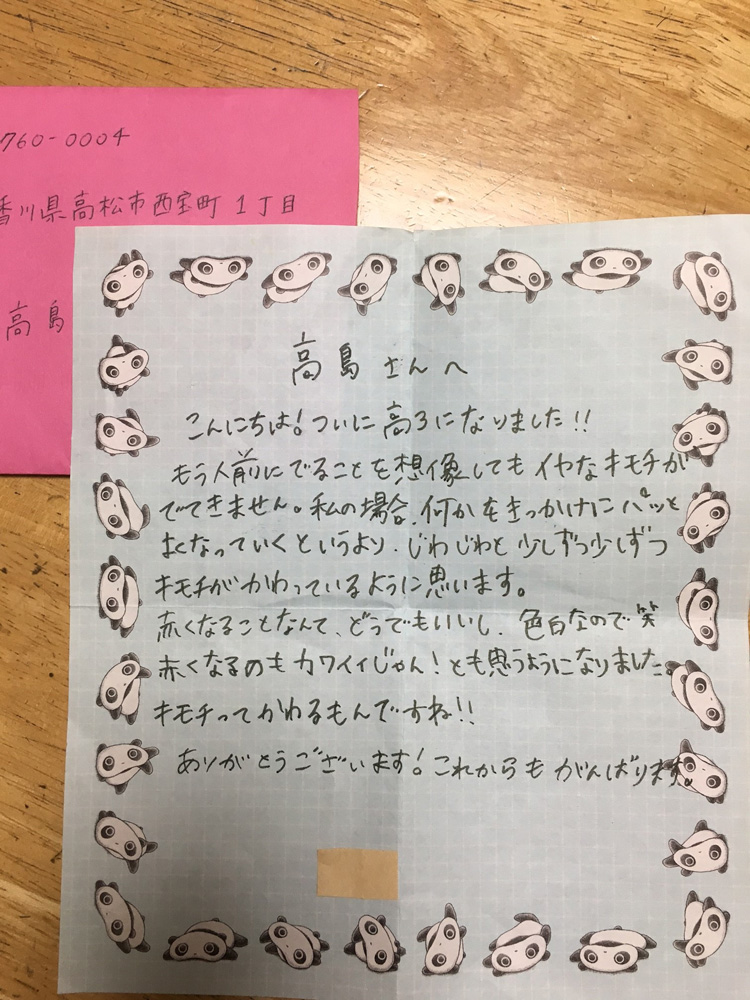 760-0004
香川県高松市西宝町1丁目
高島
高島さんへ
こんにちは!ついに高3になりました!!
もう人前にでることを想像してもイヤなキモチが
でてきません。私の場合、何かをきっかけにパッと
よくなっていくというより、じわじわと少しずつ少しずつ
キモチがかわっているように思います。
赤くなることなんて、どうでもいいし、色白なので笑
赤くなるのもカワイイじゃん!とも思うようになりました。
キモチってかわるもんですね!!
ありがとうございます!これからもがんばります。